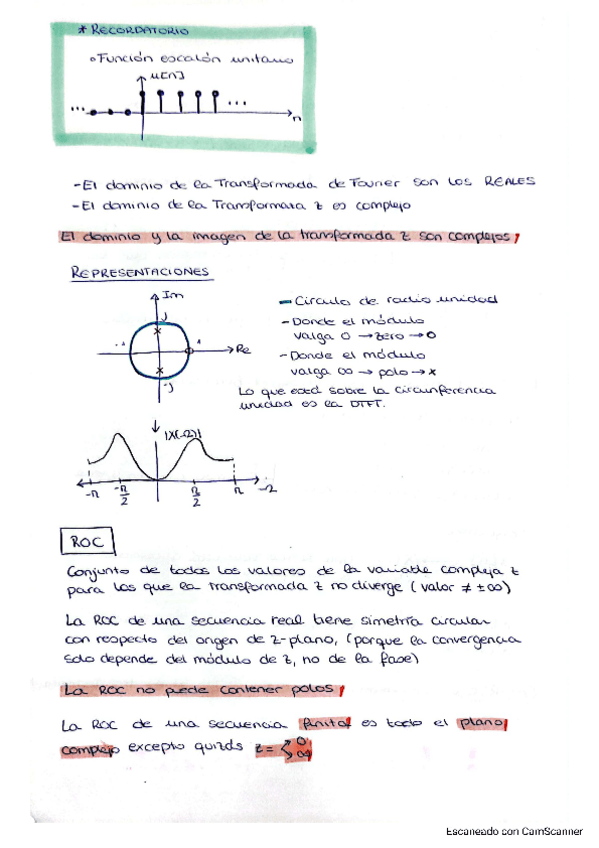 * RECORDATORIO
• Función escalón unitario
u[n]
... ...
n
-El dominio de la Transformada de Fourier son los REALES
-El dominio de la Transformara z es complejo
El dominio y la imagen de la transformada z son complejos,
REPRESENTACIONES
Im
j
-1 1 Re
-j
- Círculo de radio unidad
- Donde el módulo
valga 0 → zero → o
- Donde el módulo
valga ∞ → polo → x
Lo que está sobre la circunferencia
unidad es la DTFT.
|X(Ω)|
-π -π/2 π/2 π Ω
ROC
Conjunto de todos los valores de la variable compleja z
para los que la transformada z no diverge ( valor ≠ ±∞)
La ROC de una secuencia real tiene simetría circular
con respecto del origen de z-plano, (porque la convergencia
solo depende del módulo de z, no de la fase)
La ROC no puede contener polos,
La ROC de una secuencia finita es todo el plano
complejo excepto quizás z = 0 ∞
Escaneado con CamScanner